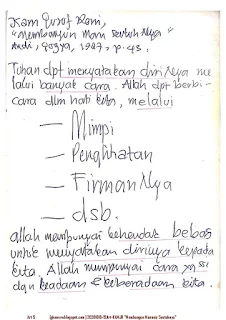 Kam Yusof Roni,
"Membangun Man Seutuh Nya"
Andi, Yogya, 1987, p. 43.
Tuhan dpt menyatakan diriNya me
lalui banyak cara. Allah dpt berbi-
cara dlm hati kita, melalui
— Mimpi
— Penglihatan
— Firman Nya
— dsb.
Allah mempunyai kehendak bebas
untuk menyatakan dirinya kepada
kita. Allah mempunyai cara yg ssi
dgn keadaan & keberadaan kita.